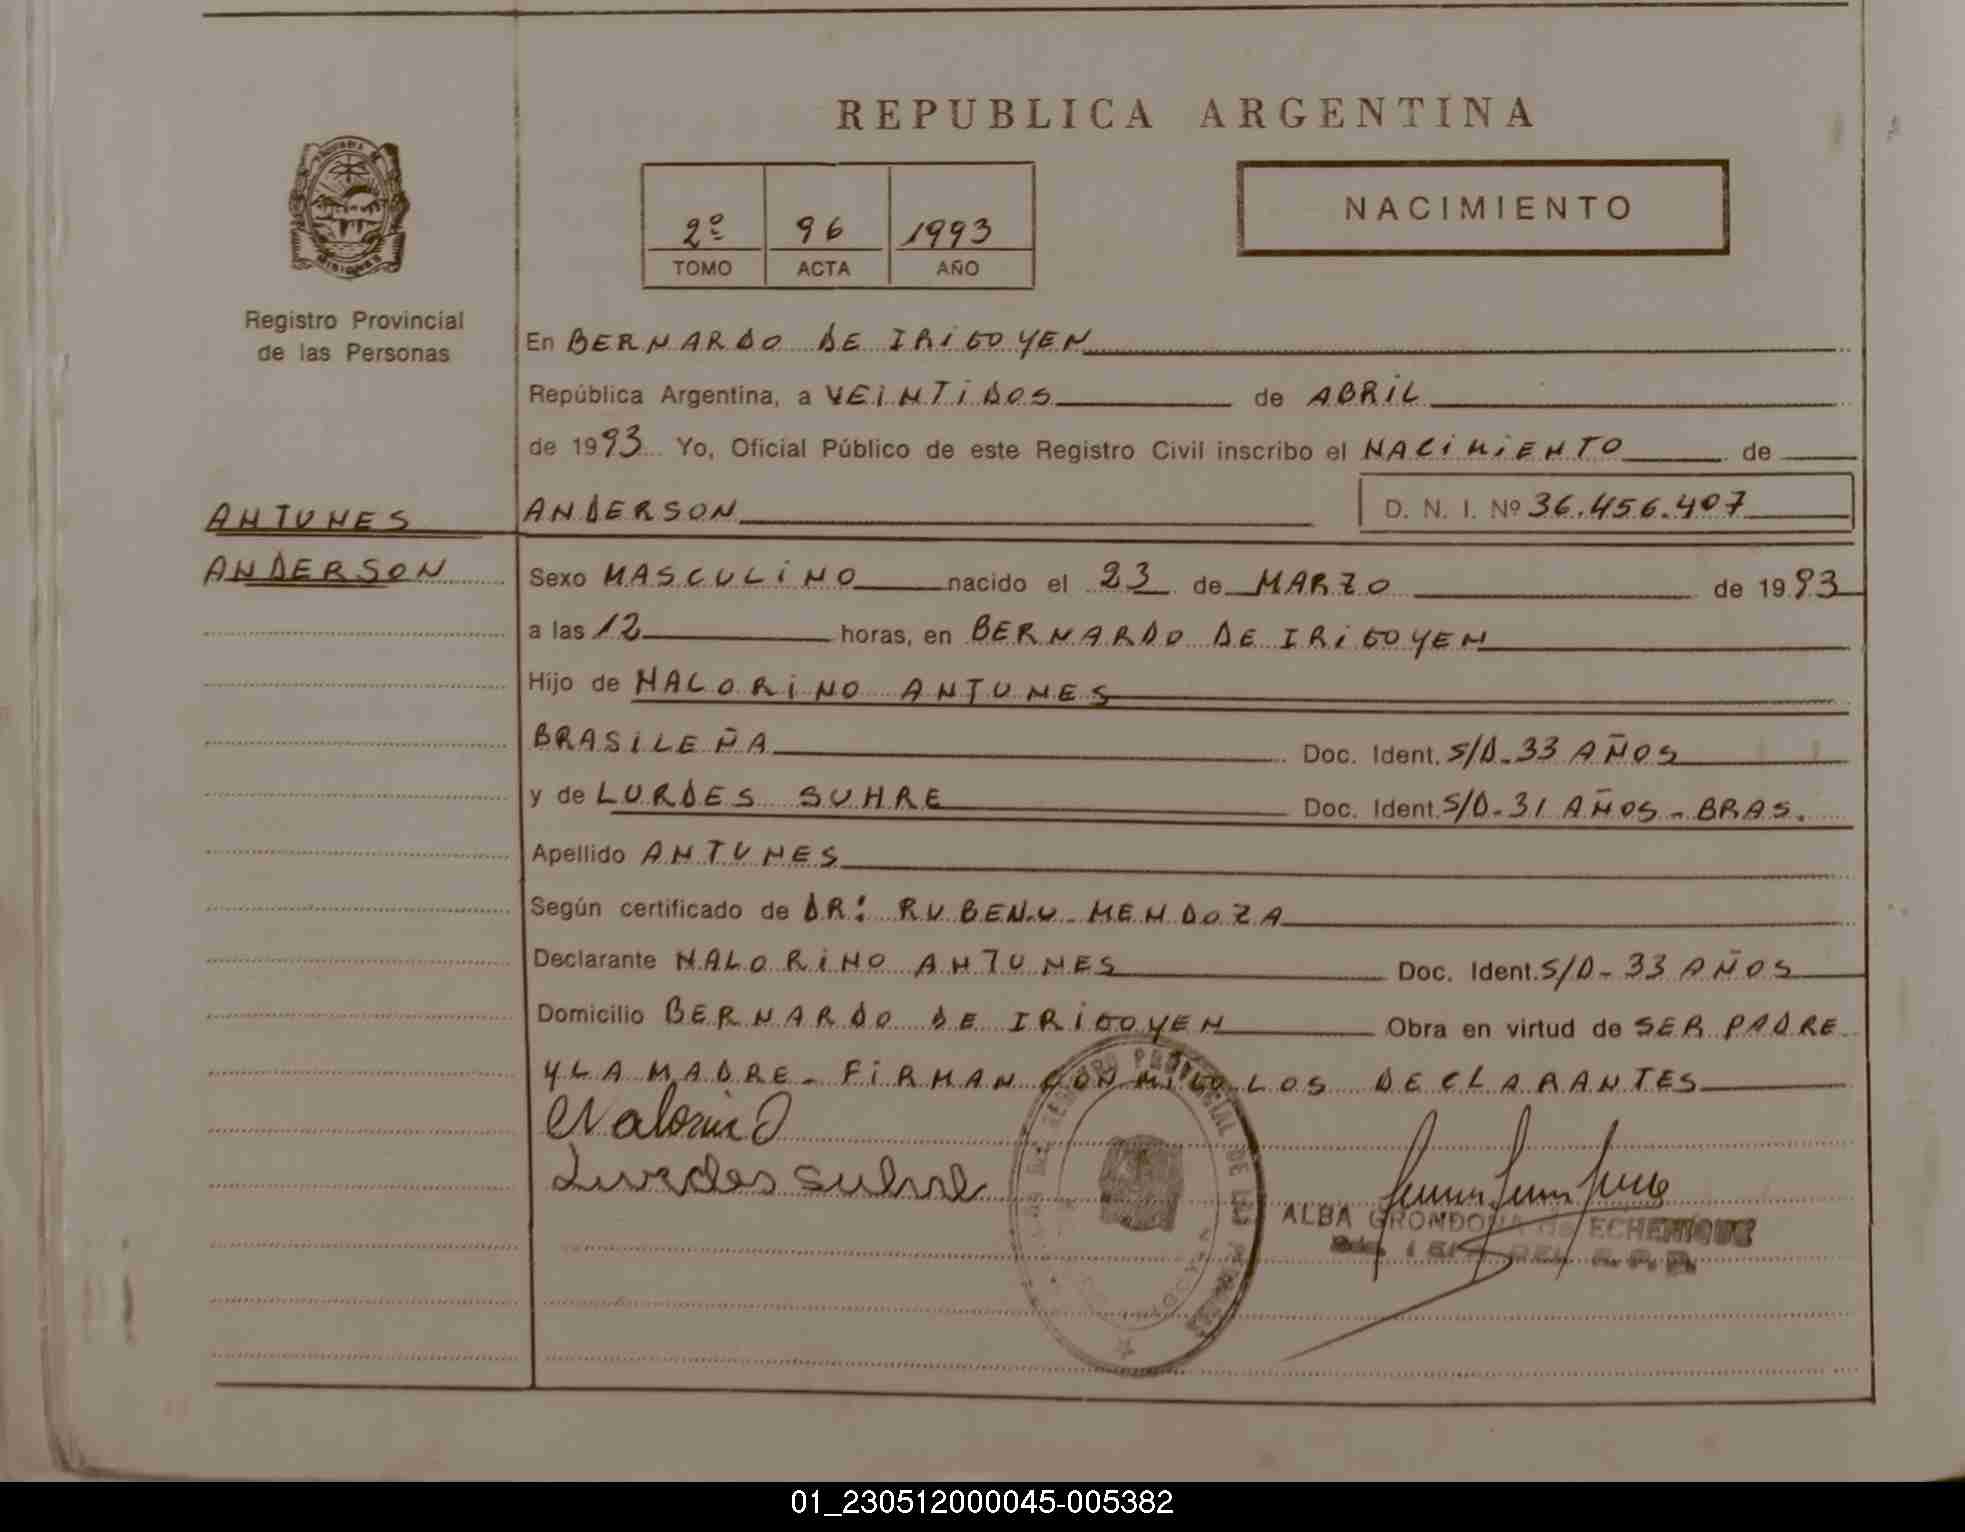 REPUBLICA ARGENTINA
2º 96 1993
TOMO ACTA AÑO
NACIMIENTO
MISIONES
Registro Provincial
de las Personas
ANTUNES
ANDERSON
En BERNARDO DE IRIGOYEN
República Argentina, a VEINTIDOS de ABRIL
de 1993 Yo, Oficial Público de este Registro Civil inscribo el NACIMIENTO de
ANDERSON D. N. I. Nº 36.456.407
Sexo MASCULINO nacido el 23 de MARZO de 1993
a las 12 horas, en BERNARDO DE IRIGOYEN
Hijo de NALORINO ANTUNES
BRASILEÑA Doc. Ident. S/D-33 AÑOS
y de LURDES SUHRE Doc. Ident. S/D-31 AÑOS-BRAS.
Apellido ANTUNES
Según certificado de DR: RUBEN.U. MENDOZA
Declarante NALORINO ANTUNES Doc. Ident. S/D-33 AÑOS
Domicilio BERNARDO DE IRIGOYEN Obra en virtud de SER PADRE
Y LA MADRE- FIRMAN CONMIGO LOS DECLARANTES
Nalorino
Lurdes Suhre
REGISTRO PROVINCIAL DE LAS PERSONAS
ALBA GRONDONA de ECHENIQUE
01_230512000045-005382